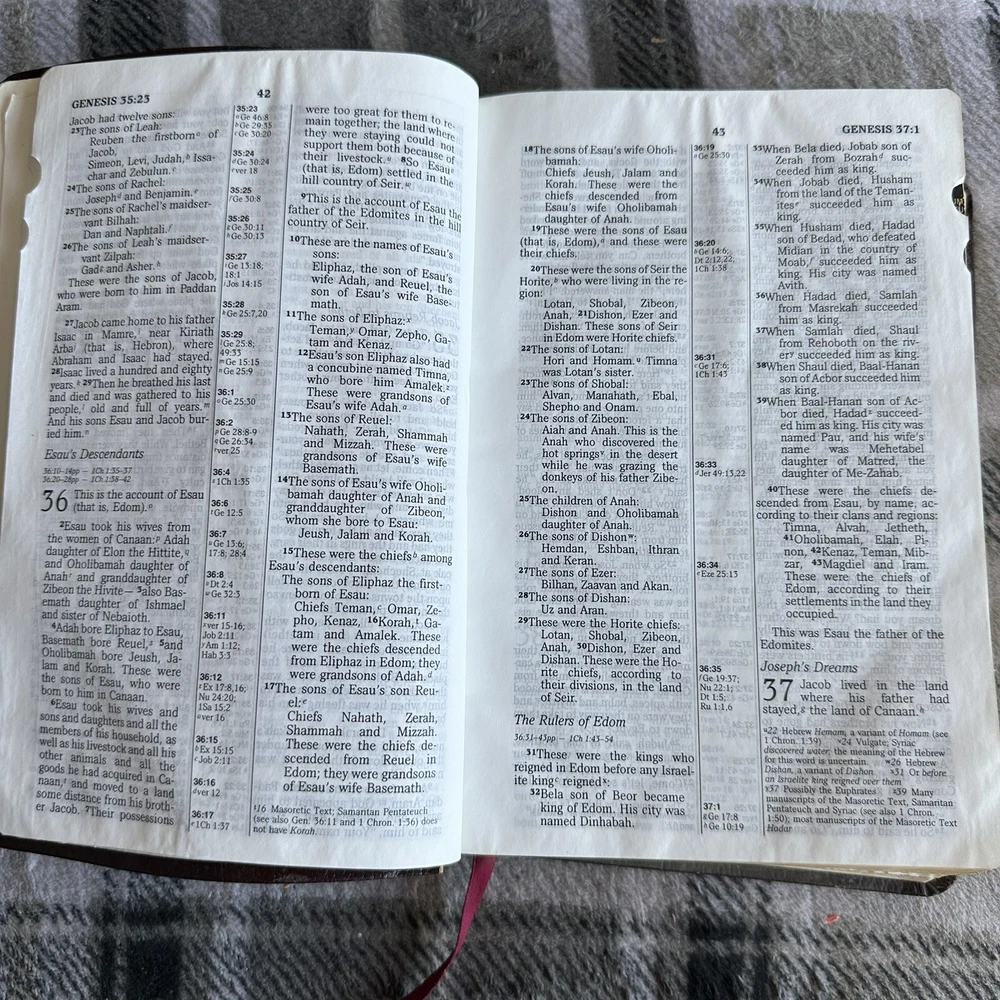 GENESIS 35:23
42
Jacob had twelve sons:
23The sons of Leah:
Reuben the firstborn of
Jacob,
Simeon, Levi, Judah, Issa-
char and Zebulun.
24The sons of Rachel:
Joseph and Benjamin.
25The sons of Rachel's maidser-
vant Bilhah:
Dan and Naphtali.
26The sons of Leah's maidser-
vant Zilpah:
Gad and Asher.
These were the sons of Jacob,
who were born to him in Paddan
Aram.
27Jacob came home to his father
Isaac in Mamre, near Kiriath
Arba (that is, Hebron), where
Abraham and Isaac had stayed.
28Isaac lived a hundred and eighty
years. 29Then he breathed his last
and died and was gathered to his
people, old and full of years.
And his sons Esau and Jacob bur-
ied him.
Esau's Descendants
36:10-14pp — 1Ch 1:35-37
36:20-28pp — 1Ch 1:38-42
36 This is the account of Esau
(that is, Edom).
2Esau took his wives from
the women of Canaan: Adah
daughter of Elon the Hittite,
and Oholibamah daughter of
Anah and granddaughter of
Zibeon the Hivite— 3also Bas-
emath daughter of Ishmael
and sister of Nebaioth.
4Adah bore Eliphaz to Esau,
Basemath bore Reuel, 5and
Oholibamah bore Jeush, Ja-
lam and Korah. These were
the sons of Esau, who were
born to him in Canaan.
6Esau took his wives and
sons and daughters and all the
members of his household, as
well as his livestock and all his
other animals and all the
goods he had acquired in Ca-
naan, and moved to a land
some distance from his broth-
er Jacob. 7Their possessions
35:23
Ge 46:8
Ge 29:35
Ge 30:20
35:24
Ge 30:24
ver 18
35:25
Ge 30:8
35:26
Ge 30:11
Ge 30:13
35:27
Ge 13:18;
18:1
Jos 14:15
35:28
Ge 25:7,20
35:29
Ge 25:8;
49:33
Ge 15:15
Ge 25:9
36:1
Ge 25:30
36:2
Ge 28:8-9
Ge 26:34
ver 25
36:4
1Ch 1:35
36:6
Ge 12:5
36:7
Ge 13:6;
17:8; 28:4
36:8
Dt 2:4
Ge 32:3
36:11
ver 15-16;
Job 2:11
Am 1:12;
Hab 3:3
36:12
Ex 17:8,16;
Nu 24:20;
1Sa 15:2
ver 16
36:15
Ex 15:15
Job 2:11
36:16
ver 12
36:17
1Ch 1:37
were too great for them to re-
main together; the land where
they were staying could not
support them both because of
their livestock. 8So Esau
(that is, Edom) settled in the
hill country of Seir.
9This is the account of Esau the
father of the Edomites in the hill
country of Seir.
10These are the names of Esau's
sons:
Eliphaz, the son of Esau's
wife Adah, and Reuel, the
son of Esau's wife Base-
math.
11The sons of Eliphaz:
Teman, Omar, Zepho, Ga-
tam and Kenaz.
12Esau's son Eliphaz also had
a concubine named Timna,
who bore him Amalek.
These were grandsons of
Esau's wife Adah.
13The sons of Reuel:
Nahath, Zerah, Shammah
and Mizzah. These were
grandsons of Esau's wife
Basemath.
14The sons of Esau's wife Oholi-
bamah daughter of Anah and
granddaughter of Zibeon,
whom she bore to Esau:
Jeush, Jalam and Korah.
15These were the chiefs among
Esau's descendants:
The sons of Eliphaz the first-
born of Esau:
Chiefs Teman, Omar, Ze-
pho, Kenaz, 16Korah, Ga-
tam and Amalek. These
were the chiefs descended
from Eliphaz in Edom; they
were grandsons of Adah.
17The sons of Esau's son Reu-
el:
Chiefs Nahath, Zerah,
Shammah and Mizzah.
These were the chiefs de-
scended from Reuel in
Edom; they were grandsons
of Esau's wife Basemath.
16 Masoretic Text; Samaritan Pentateuch
(see also Gen. 36:11 and 1 Chron. 1:36) does
not have Korah.
43
GENESIS 37:1
18The sons of Esau's wife Oholi-
bamah:
Chiefs Jeush, Jalam and
Korah. These were the
chiefs descended from
Esau's wife Oholibamah
daughter of Anah.
19These were the sons of Esau
(that is, Edom), and these were
their chiefs.
20These were the sons of Seir the
Horite, who were living in the re-
gion:
Lotan, Shobal, Zibeon,
Anah, 21Dishon, Ezer and
Dishan. These sons of Seir
in Edom were Horite chiefs.
22The sons of Lotan:
Hori and Homam. Timna
was Lotan's sister.
23The sons of Shobal:
Alvan, Manahath, Ebal,
Shepho and Onam.
24The sons of Zibeon:
Aiah and Anah. This is the
Anah who discovered the
hot springs in the desert
while he was grazing the
donkeys of his father Zibe-
on.
25The children of Anah:
Dishon and Oholibamah
daughter of Anah.
26The sons of Dishon:
Hemdan, Eshban, Ithran
and Keran.
27The sons of Ezer:
Bilhan, Zaavan and Akan.
28The sons of Dishan:
Uz and Aran.
29These were the Horite chiefs:
Lotan, Shobal, Zibeon,
Anah, 30Dishon, Ezer and
Dishan. These were the Ho-
rite chiefs, according to
their divisions, in the land
of Seir.
The Rulers of Edom
36:31-43pp — 1Ch 1:43-54
31These were the kings who
reigned in Edom before any Israel-
ite king reigned:
32Bela son of Beor became
king of Edom. His city was
named Dinhabah.
36:19
Ge 25:30
36:20
Ge 14:6;
Dt 2:12,22;
1Ch 1:38
36:31
Ge 17:6;
1Ch 1:43
36:33
Jer 49:13,22
36:34
Eze 25:13
36:35
Ge 19:37;
Nu 22:1;
Dt 1:5;
Ru 1:1,6
37:1
Ge 17:8
Ge 10:19
33When Bela died, Jobab son of
Zerah from Bozrah suc-
ceeded him as king.
34When Jobab died, Husham
from the land of the Teman-
ites succeeded him as
king.
35When Husham died, Hadad
son of Bedad, who defeated
Midian in the country of
Moab, succeeded him as
king. His city was named
Avith.
36When Hadad died, Samlah
from Masrekah succeeded
him as king.
37When Samlah died, Shaul
from Rehoboth on the riv-
er succeeded him as king.
38When Shaul died, Baal-Hanan
son of Acbor succeeded him
as king.
39When Baal-Hanan son of Ac-
bor died, Hadad succeed-
ed him as king. His city was
named Pau, and his wife's
name was Mehetabel
daughter of Matred, the
daughter of Me-Zahab.
40These were the chiefs de-
scended from Esau, by name, ac-
cording to their clans and regions:
Timna, Alvah, Jetheth,
41Oholibamah, Elah, Pi-
non, 42Kenaz, Teman, Mib-
zar, 43Magdiel and Iram.
These were the chiefs of
Edom, according to their
settlements in the land they
occupied.
This was Esau the father of the
Edomites.
Joseph's Dreams
37 Jacob lived in the land
where his father had
stayed, the land of Canaan.
22 Hebrew Hemam, a variant of Homam (see
1 Chron. 1:39) 24 Vulgate; Syriac
discovered water; the meaning of the Hebrew
for this word is uncertain. 26 Hebrew
Dishan, a variant of Dishon 31 Or before
an Israelite king reigned over them
37 Possibly the Euphrates 39 Many
manuscripts of the Masoretic Text, Samaritan
Pentateuch and Syriac (see also 1 Chron.
1:50); most manuscripts of the Masoretic Text
Hadar